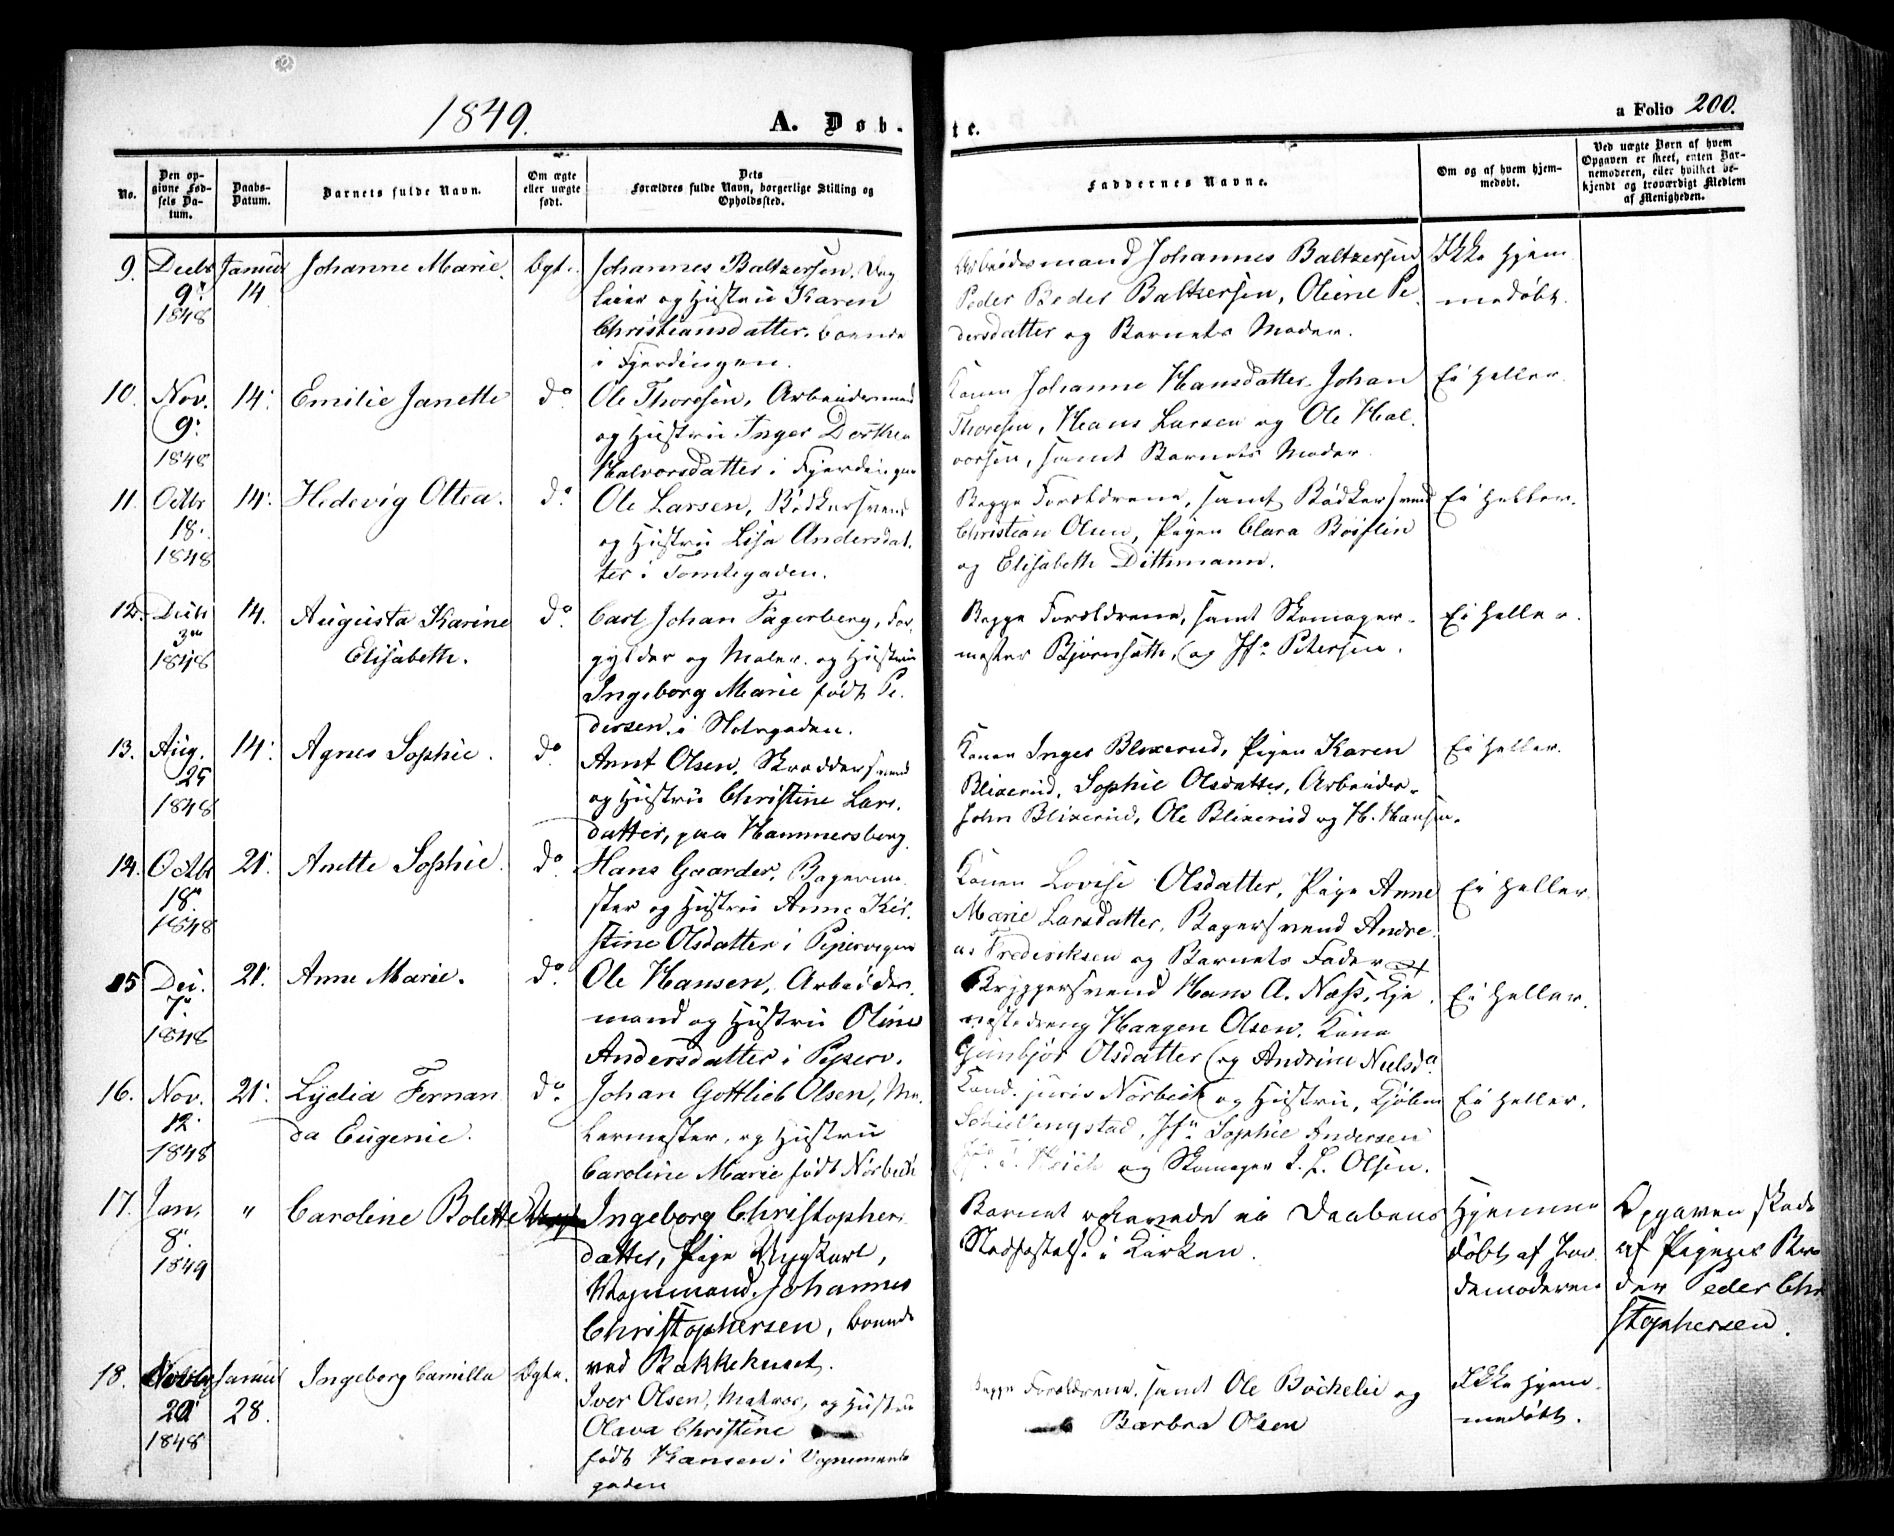 1849. A. Døb-
te. a Folio 200.
No.
Den op-
givne Fød-
sels Da-
tum.
Daabs-
Datum.
Barnets fulde Navn.
Om ægte
eller uægte
født.
Dets
Forældres fulde Navn, borgerlige Stilling og
Opholdssted.
Faddernes Navne.
Om og af hvem hjem-
medøbt.
Ved uægte Børn af hvem
Opgaven er skeet, enten Bar-
nemoderen, eller hvilket be-
kjendt og troværdigt Medlem
af Menigheden.
9. Decbr 9. 1848
Januar 14
Johanne Marie.
Ægte.
Johannes Baltzersen, Dag
leier og Hustru Karen
Christiansdatter, boende
i Fjerdingen.
Arbeidsmand Johannes Baltzersen
Peder Beder Baltzersen, Oliene Pe
dersdatter og Barnets Moder.
Ikke hjem
medøbt.
10. Nov. 9. 1848
14.
Emilie Janette
do.
Ole Thoresen, Arbeidsmand
og Hustru Inger Dorthea
Halvorsdatter i Fjerdingen
Konen Johanne Hansdatter, Johan
Thoresen, Hans Larsen og Ole Hal
vorsen, samt Barnets Moder.
Ei heller.
11. Octbr 18. 1848
14.
Hedevig Ottea.
do.
Ole Larsen, Bødkersvend
og Hustru Lisa Andersdat
ter i Tomtegaden.
Begge Forældrene, samt Bødkersvend
Christian Olsen, Pigen Clara
og Elisabeth Dithmann.
Ei heller.
12. Decbr 3 1848
14.
Augusta Karine
Elisabeth.
do.
Carl Johan Fagerberg, For
gylder og Maler og Hustru
Ingeborg Marie født Pe
dersen, i
Begge Forældrene, samt Skomager-
mester og Jfr. Petersen.
Ei heller.
13. Aug. 25 1848
14.
Agnes Sophie.
do.
Arnt Olsen, Skræddersvend
og Hustru Christine Lars
datter, paa Hammersborg.
Konen Inger Blixerud, Pigen Karen
Blixerud, Sophie Olsdatter, Arbeider
John Blixerud, Ole Blixerud og H. Hansen.
Ei heller.
14. Octbr 18. 1848
21.
Anette Sophie.
do.
Hans Gaarder, Bagerme
ster og Hustru Anne Kir
stine Olsdatter i Pipervigen
Konen Lovise Olsdatter, Pige Anne
Marie Larsdatter, Bagersvend Andre
as Frederiksen og Barnets Fader
Ei heller.
15 Dec. 7. 1848
21.
Anne Marie.
do.
Ole Hansen, Arbeids
mand og Hustru Oline
Andersdatter i Piperv.
Bryggersvend Hans A. Næss, Tje
nestedreng Haagen Olsen, Kone
Gunbjør Olsdatter og Andrine Nielsd.
Ei heller.
16. Nov. 12. 1848
21.
Lydia Fernan
da Eugenie.
do.
Johan Gottlieb Olsen, Ma
lermester, og Hustru
Caroline Marie født Nørbech
Cand. juris Nørbech og Hustru, Kjøbm
Schillingstad, Jfr. Sophie Andersen
og Skomager J. L. Olsen.
Ei heller.
17. Jan. 8. 1849
"
Caroline Bolette
Uægte
Ingeborg Christopher
datter, Pige Ungkarl,
Vognmand Johannes
Christophersen, boende
ved Bakkehuset.
Barnet til Daabens
Stadfæstelse i Kirken.
Hjemme
døbt af Jor
demoderen
Opgaven skede
af Pigens Bro
der Peder Chri
stophersen.
18. 20 1848
Januar 28.
Ingeborg Camilla
Ægte.
Iver Olsen, Matros, og Hustru
Olava Christine
født Hansen i Vognmands
gaden
Begge Forældrene, samt Ole Bøchelie og
Barbra Olsen
Ikke hjem
medøbt.